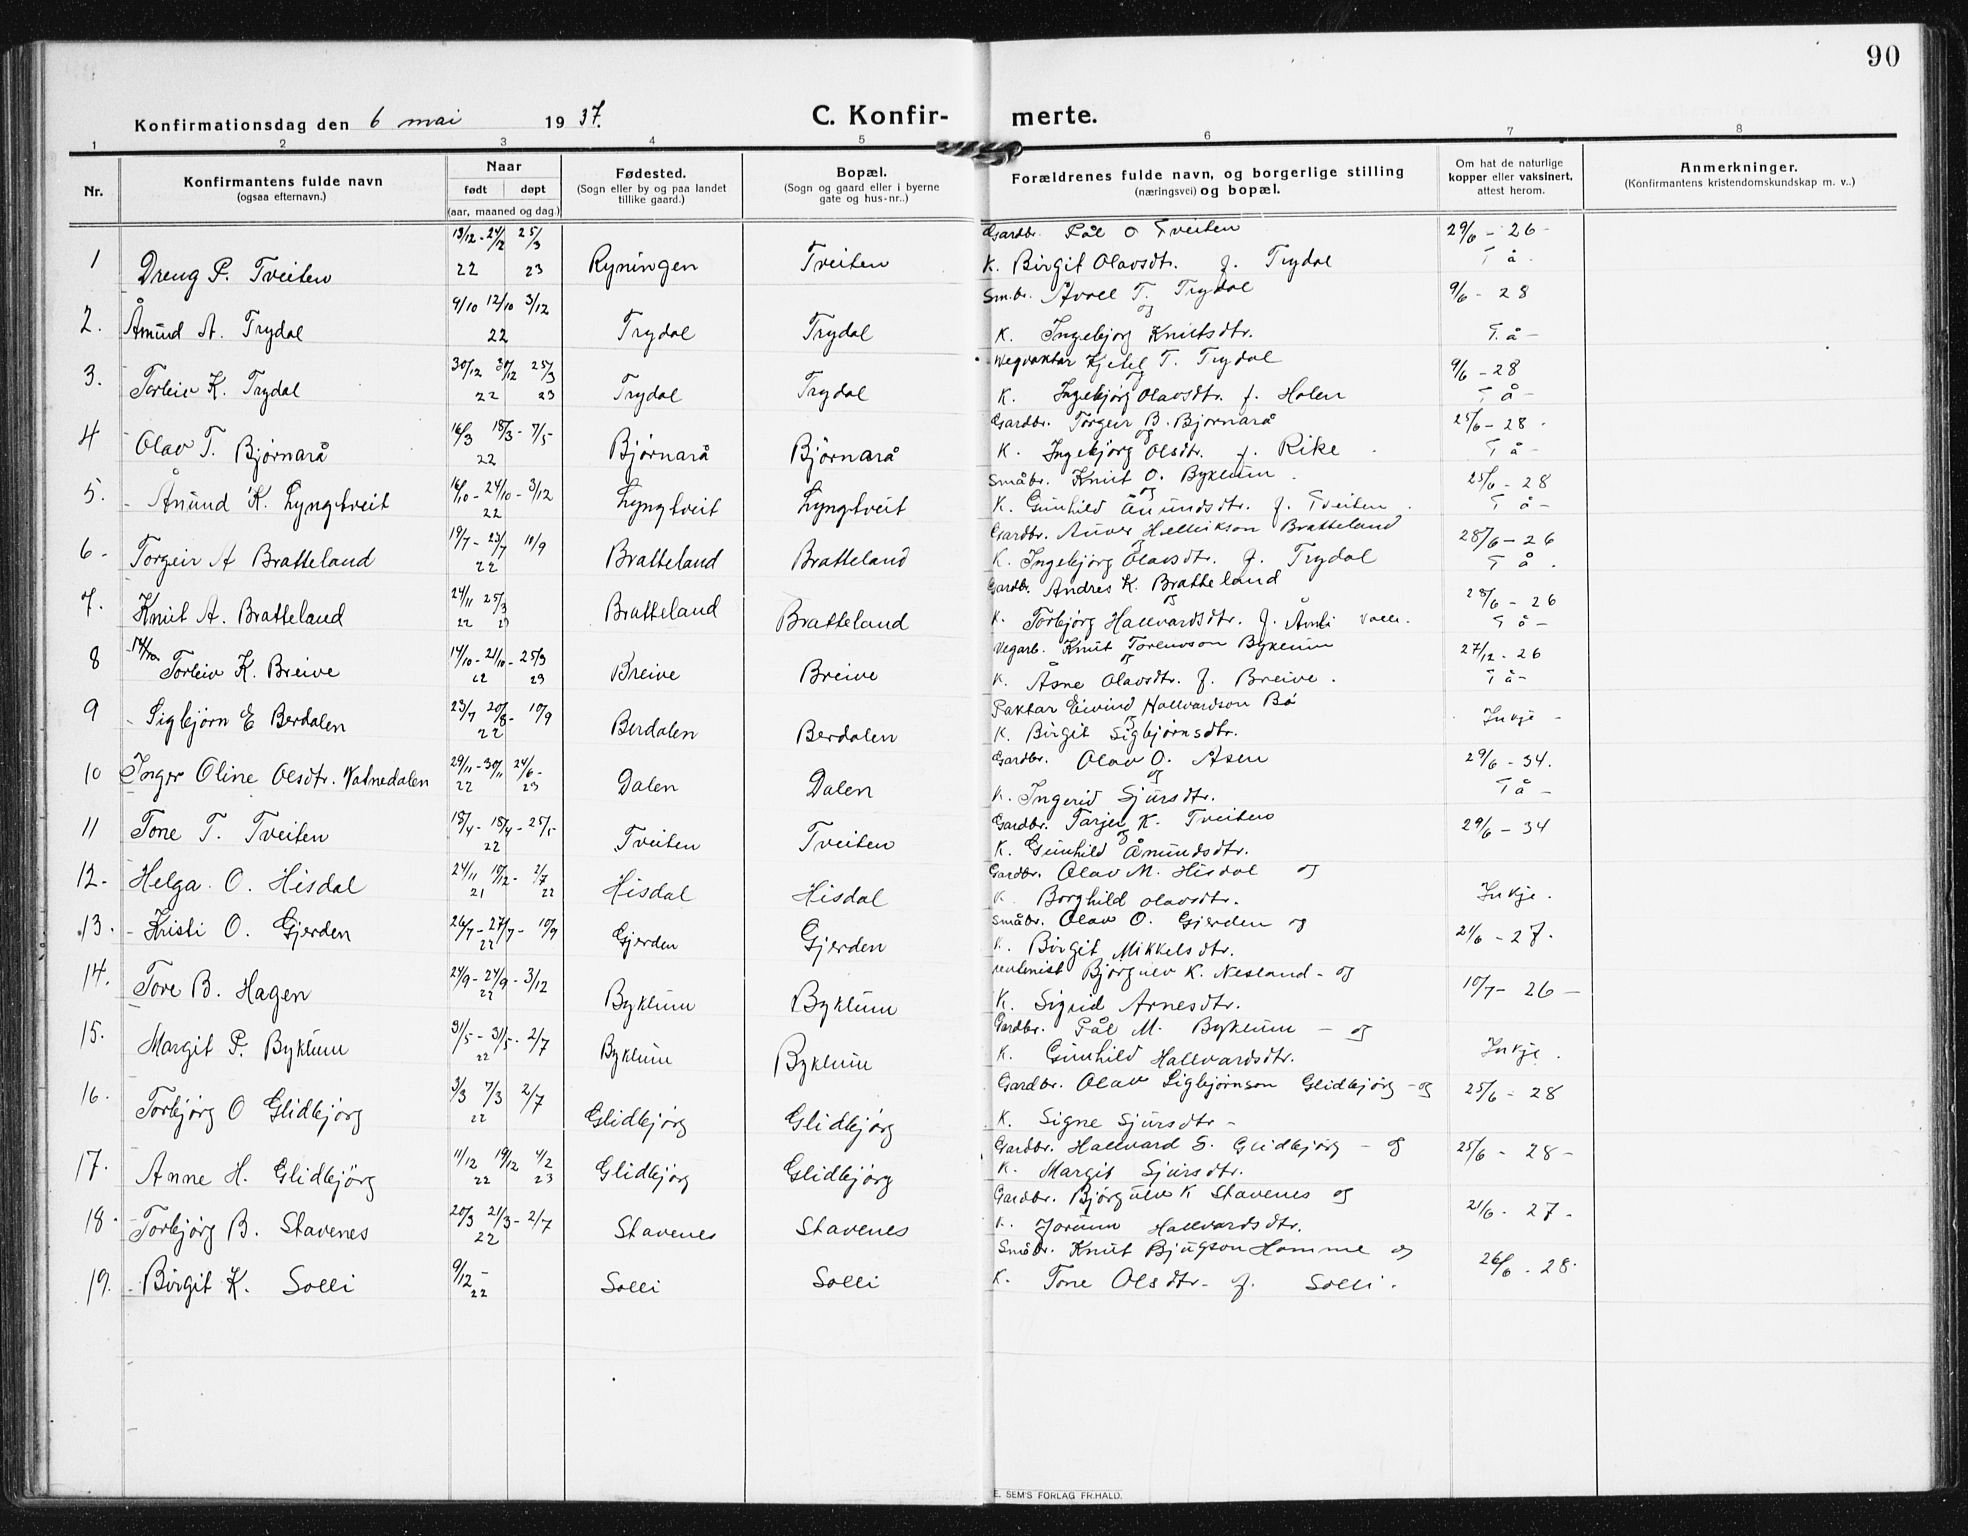 90
Konfirmationsdag den 6 mai 1937.
C. Konfirmerte.
1 2 3 4 5 6 7 8
Nr.
Konfirmantens fulde navn
(ogsaa efternavn.)
Naar
født døpt
(aar, maaned og dag.)
Fødested.
(Sogn eller by og paa landet
tillike gaard.)
Bopæl.
(Sogn og gaard eller i byerne
gate og hus-nr..)
Forældrenes fulde navn, og borgerlige stilling
(næringsvei) og bopæl.
Om hat de naturlige
kopper eller vaksinert,
attest herom.
Anmerkninger.
(Konfirmantens kristendomskundskap m. v..)
1 Dreng P. Tveiten 13/12 - 24/12 22 25/3 23 Ryningen Tveiten Gardbr. Pål O Tveiten 29/6 - 26 -
K. Birgit Olavsdtr. f. Trydal T å -
2. Åmund A. Trydal 9/10 12/10 3/12 22 Trydal Trydal Sm.br. Avall T. Trydal og 9/6 - 28
K. Ingebjørg Knutsdtr. T. å -
3. Torleiv K. Trydal 30/12 30/12 22 25/3 23 Trydal Trydal Vegvaktar Kjetel T. Trydal og 9/6 - 28
K. Ingebjørg Olavsdtr. f. Holen T å -
4 Olav T. Bjørnarå 16/3 18/3 - 7/5 22 Bjørnarå Bjørnarå Gardbr. Torgeir B. Bjørnarå og 25/6 - 28 .
K. Ingebjørg Olsdtr. f. Rike T å -
5. Ånund K. Lyngtveit 16/10 - 24/10 - 3/12 22 Lyngtveit Lyngtveit Småbr. Knut O. Byklum og 25/6 - 28
K. Gunhild Ånundsdtr. f. Tveiten T å -
6 - Torgeir A Bratteland 19/7 - 23/7 10/9 22 Bratteland Bratteland Gardbr. Bratteland og 28/6 - 26
K. Ingebjørg Olavsdtr. f. Trydal T å .
7. Knut A. Bratteland 24/11 22 25/3 23 Bratteland Bratteland Gardbr. Andres K. Bratteland og 28/6 - 26
K. Torbjørg Hallvardsdtr. f. T å -
8 Torleiv K. Breive 14/10 - 21/10 - 22 25/3 23 Breive Breive Vegarb. Knut Byklum og 27/12 - 26
K. Åsne Olavsdtr. f. Breive . T å -
9 Sigbjørn E Berdalen 23/7 20/8 - 10/9 22 Berdalen Berdalen Paktar Eivind Hallvardson Bø og Inkje -
K. Birgit Sigbjørnsdtr.
10 Inger Oline Olsdtr. Vatnedalen 29/11 - 30/11 22 24/6 - 23 Dalen Dalen Gardbr. Olav O. Åsen og 29/6 - 34.
K. Ingerid Sjursdtr. T å -
11 Tone T. Tveiten 15/4 - 18/4 - 25/5 - 22 Tveiten Tveiten Gardbr. Tarjei K. Tveiten og 29/6 - 34
K. Gunhild Åmundsdtr.
12 - Helga O. Hisdal 24/11 21 2/7 22 Hisdal Hisdal Gardbr. Olav M. Hisdal og Inkje .
K. Borghild Olavsdtr.
13 . - Kristi O. Gjerden 26/7 - 27/7 - 10/9 22 Gjerden Gjerden Småbr. Olav O. Gjerden og 21/6 - 27 .
K. Birgit Mikkelsdtr.
14. Tore B. Hagen 24/9 - 24/9 - 3/12 22 Byklum Byklum Bjørgulv K. Nesland - og 10/7 - 26 -
K. Sigrid Arnesdtr.
15. Margit P. Byklum 31/5 - 31/5 - 2/7 22 Byklum Byklum Gardbr. Pål M. Byklum - og Inkje .
K. Gunhild Hallvardsdtr.
16. Torbjørg O Glidbjørg 3/3 7/3 2/7 22 Glidbjørg Glidbjørg Gardbr. Olav Sigbjørnson Glidbjørg - og 25/6 - 28
K. Signe Sjursdtr -
17. Anne H. Glidbjørg 11/12 19/12 22 4/2 23 Glidbjørg Glidbjørg Gardbr. Hallvard S. Glidbjørg - og 25/6 - 28 -
K. Margit Sjursdtr.
18 . Torbjørg B. Stavenes 20/3 21/3 - 2/7 22 Stavenes Stavenes Gardbr. Bjørgulv K Stavenes og 21/6 - 27 -
K. Jorunn Hallvardsdtr.
19. Birgit K. Solli 9/12 - 22 Solli Solli Småbr. Knut Bjugson Homme og 26/6 - 28 .
K. Tone Olsdtr - f. Solli .
E. SEM'S FORLAG FR.HALD.